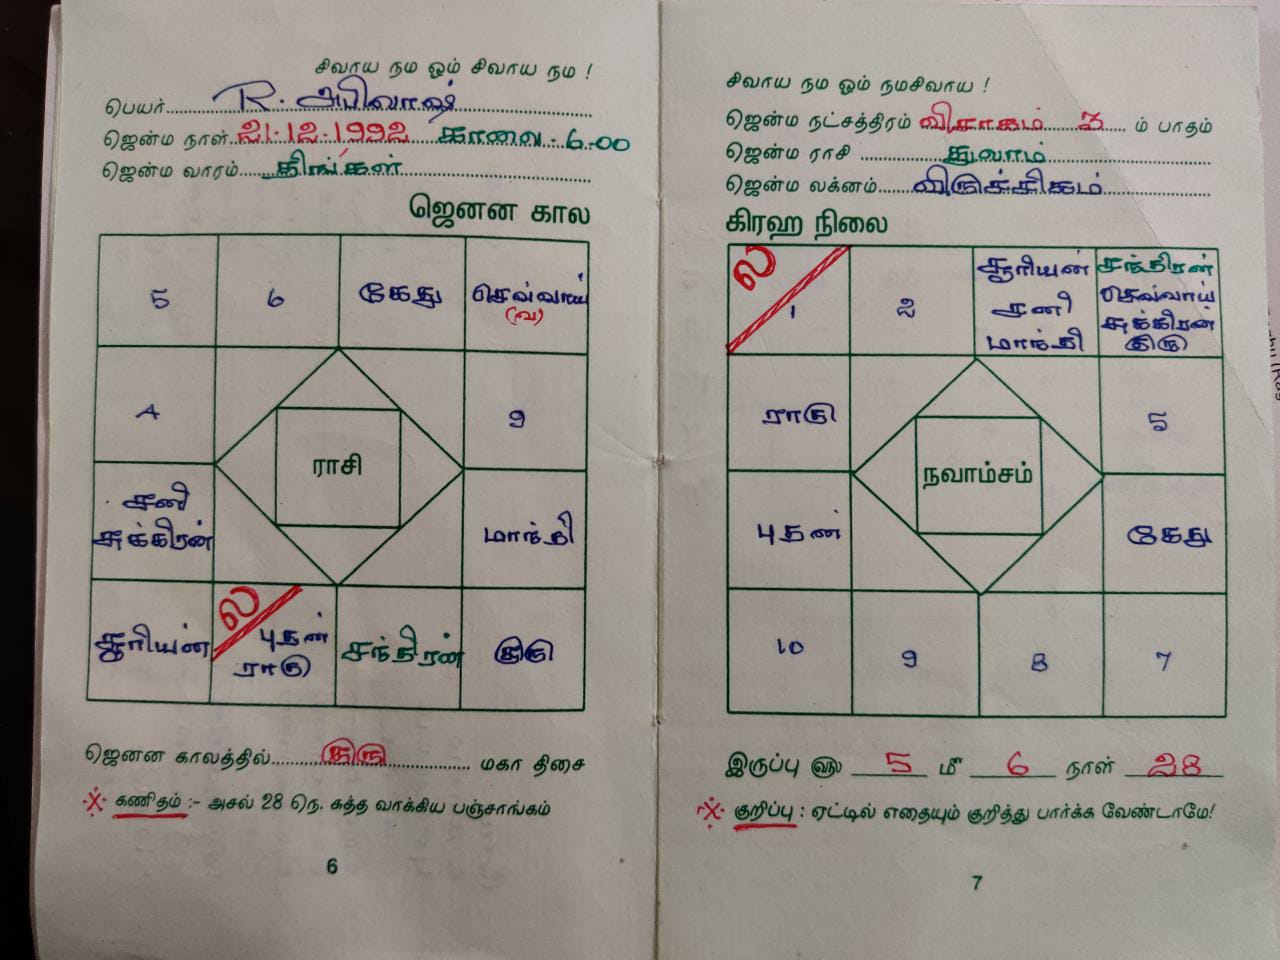 சிவாய நம ஓம் சிவாய நம !
பெயர் R. அபிலாஷ்
ஜென்ம நாள் 21.12.1992 காலை - 6.00
ஜென்ம வாரம் திங்கள்
ஜனன கால
5 6 கேது செவ்வாய் (வ)
4 9
ராசி
சனி சுக்கிரன் மாந்தி
சூரியன் ல புதன் ராகு சந்திரன் குரு
ஜெனன காலத்தில் குரு மகா திசை
※ கணிதம் :- அசல் 28 நெ. சுத்த வாக்கிய பஞ்சாங்கம்
6
சிவாய நம ஓம் நமசிவாய !
ஜென்ம நட்சத்திரம் விசாகம் 3 ம் பாதம்
ஜென்ம ராசி துலாம்
ஜென்ம லக்னம் விருச்சிகம்
கிரஹ நிலை
ல 1 2 சூரியன் சனி மாந்தி சந்திரன் செவ்வாய் சுக்கிரன் குரு
ராகு 5
நவாம்சம்
புதன் கேது
10 9 8 7
இருப்பு வரு 5 மீ 6 நாள் 28
※ குறிப்பு : ஏட்டில் எதையும் குறித்து பார்க்க வேண்டாமே!
7